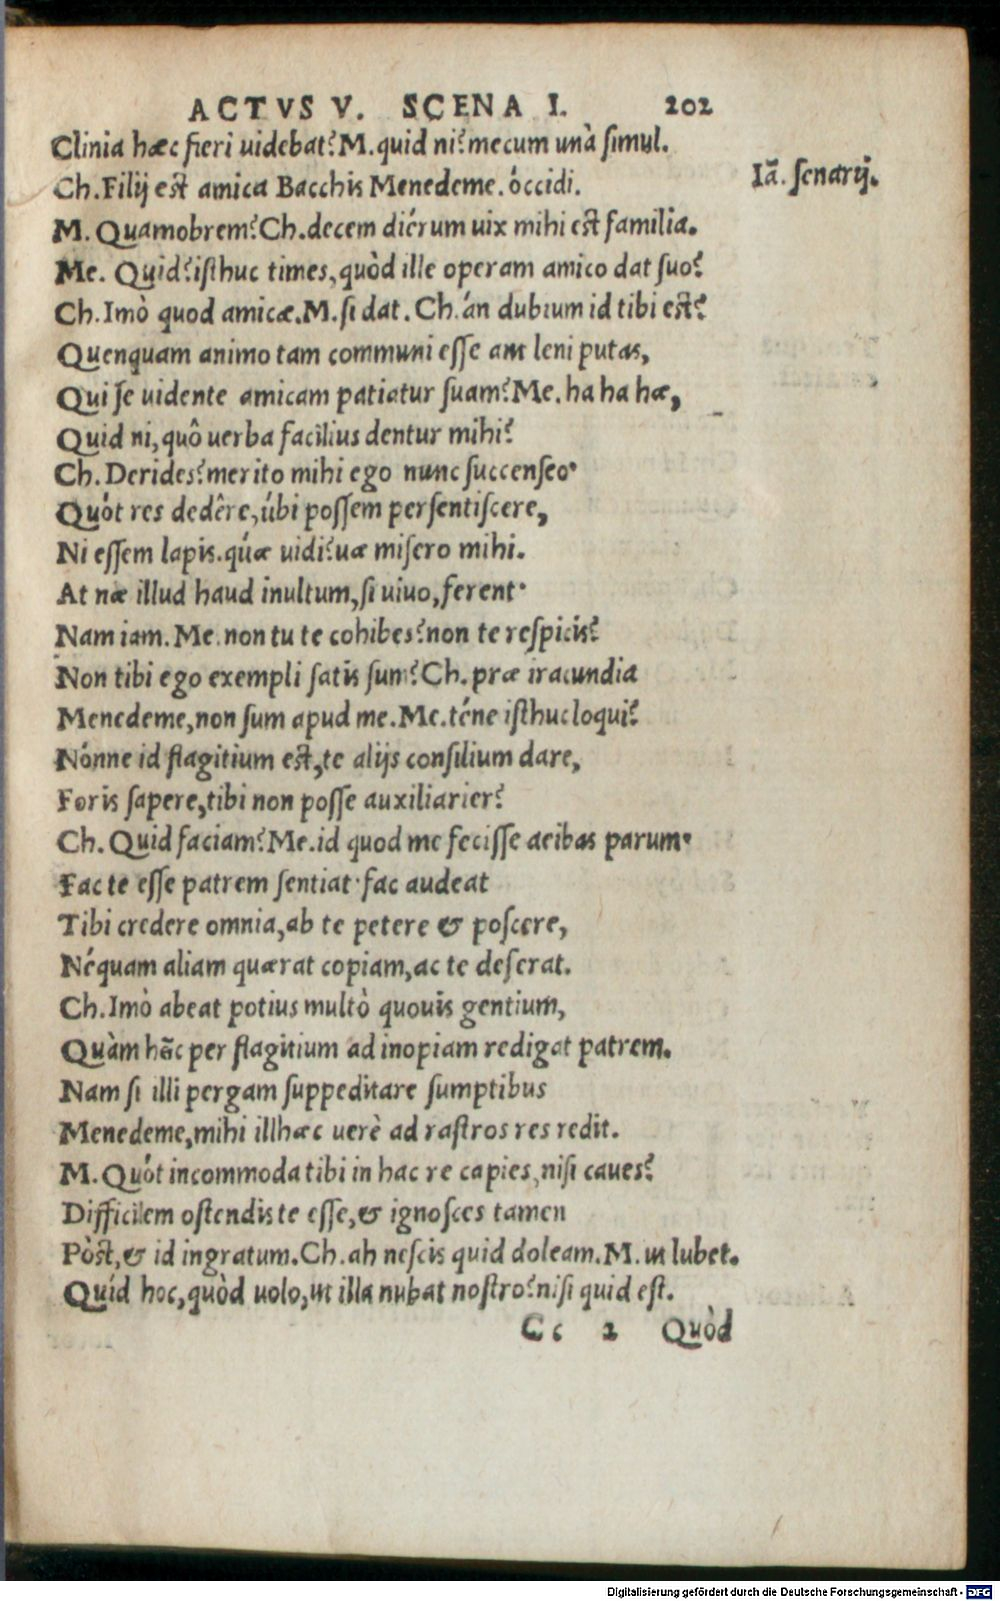 ACTVS V. SCENA I. 202
Clinia hæc fieri uidebat? M. quid ni? mecum unà simul.
Ch. Filij est amica Bacchis Menedeme. óccidi. Iā. senarij.
M. Quamobrem? Ch. decem diérum uix mihi est familia.
Me. Quid? isthuc times, quòd ille operam amico dat suo?
Ch. Imò quod amicæ. M. si dat. Ch. án dubium id tibi est?
Quenquam animo tam communi esse aut leni putas,
Qui se uidente amicam patiatur suam? Me. ha ha hæ,
Quid ni, quô uerba facilius dentur mihi?
Ch. Derides? merito mihi ego nunc succenseo.
Quót res dedêre, úbi possem persentiscere,
Ni essem lapis. quæ uidi? uæ misero mihi.
At næ illud haud inultum, si uiuo, ferent.
Nam iam. Me. non tu te cohibes? non te respicis?
Non tibi ego exempli satis sum? Ch. præ iracundia
Menedeme, non sum apud me. Me. téne isthuc loqui?
Nónne id flagitium est, te alijs consilium dare,
Foris sapere, tibi non posse auxiliarier?
Ch. Quid faciam? Me. id quod me fecisse aeibas parum.
Fac te esse patrem sentiat. fac audeat
Tibi credere omnia, ab te petere & poscere,
Néquam aliam quærat copiam, ac te deserat.
Ch. Imò abeat potius multò quouis gentium,
Quàm hæc per flagitium ad inopiam redigat patrem.
Nam si illi pergam suppeditare sumptibus
Menedeme, mihi illhæc uerè ad rastros res redit.
M. Quót incommoda tibi in hac re capies, nisi caues?
Difficilem ostendis te esse, & ignosces tamen
Pòst, & id ingratum. Ch. ah nescis quid doleam. M. ut lubet.
Quid hoc, quòd uolo, ut illa nubat nostro? nisi quid est.
Cc 2 Quòd
Digitalisierung gefördert durch die Deutsche Forschungsgemeinschaft - DFG